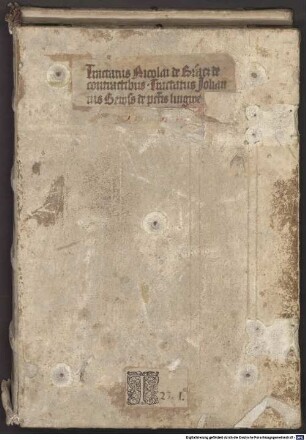 Tractatus Nicolai de Gretz de
contractibus · Tractatus Johan
nis Gewss de pctis lingue
I
27. 1.
Digitalisierung gefördert durch die Deutsche Forschungsgemeinschaft DFG